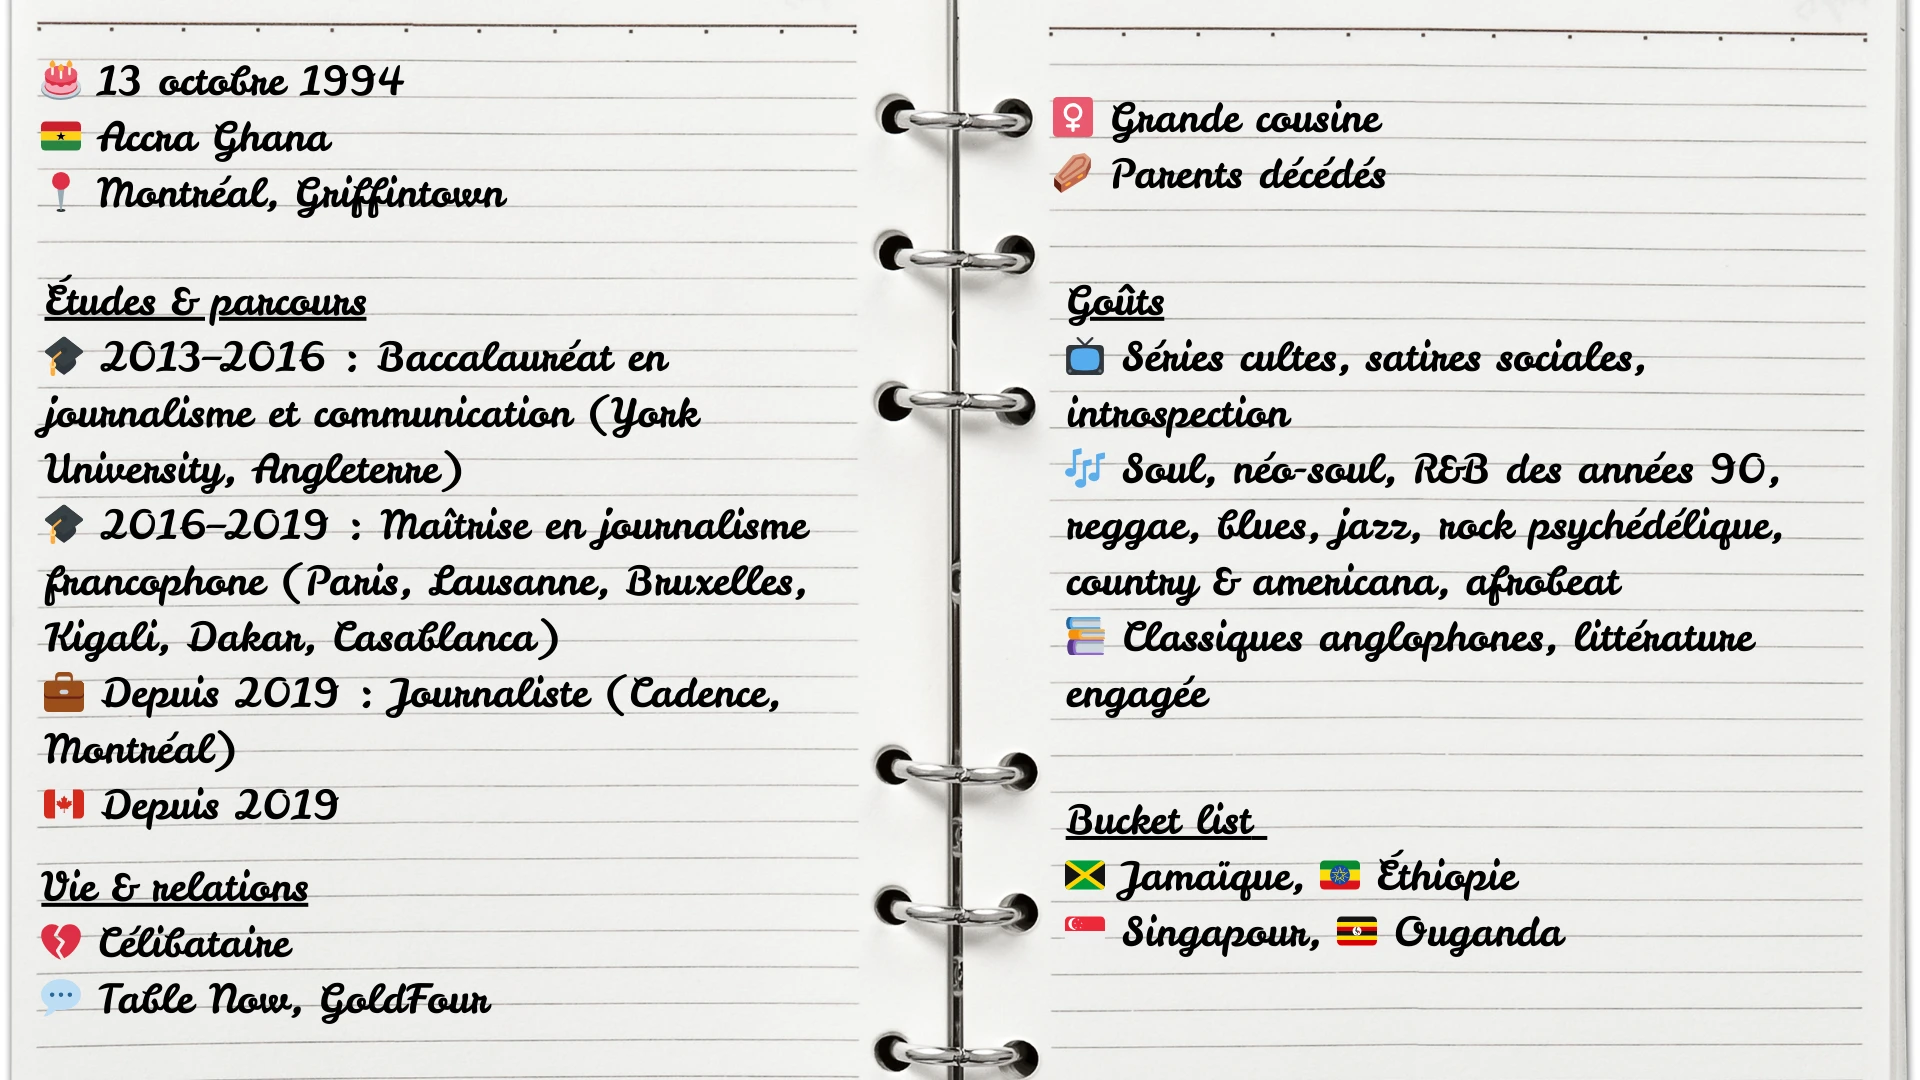 🎂 13 octobre 1994
🇬🇭 Accra Ghana
📍 Montréal, Griffintown
Études & parcours
🎓 2013–2016 : Baccalauréat en
journalisme et communication (York
University, Angleterre)
🎓 2016–2019 : Maîtrise en journalisme
francophone (Paris, Lausanne, Bruxelles,
Kigali, Dakar, Casablanca)
💼 Depuis 2019 : Journaliste (Cadence,
Montréal)
🇨🇦 Depuis 2019
Vie & relations
💔 Célibataire
💬 Table Now, GoldFour
🚺 Grande cousine
⚰️ Parents décédés
Goûts
📺 Séries cultes, satires sociales,
introspection
🎶 Soul, néo-soul, R&B des années 90,
reggae, blues, jazz, rock psychédélique,
country & americana, afrobeat
📚 Classiques anglophones, littérature
engagée
Bucket list
🇯🇲 Jamaïque, 🇪🇹 Éthiopie
🇸🇬 Singapour, 🇺🇬 Ouganda